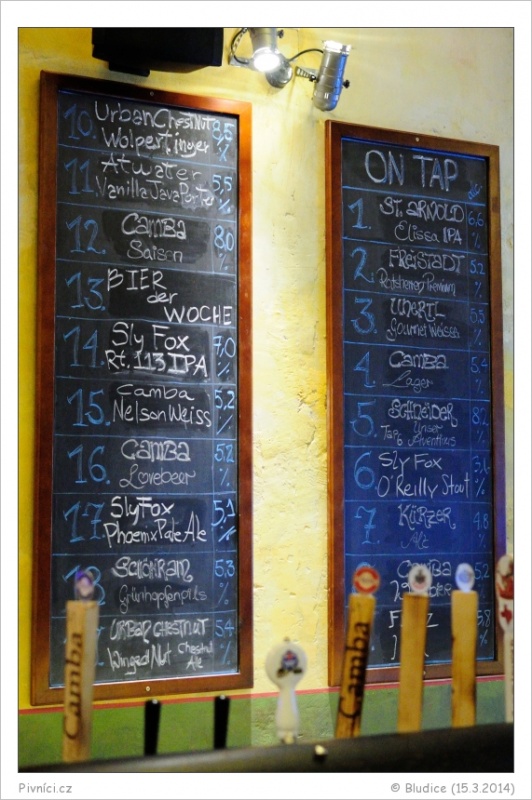 10. Urban Chestnut 8,5
Wolpertinger %
11. Atwater 5,5
Vanilla Java Porter %
12. Camba 8,0
Saison %
13. BIER
der
WOCHE
14. Sly Fox 7,0
Rt. 113 IPA %
15. Camba 5,2
Nelson Weiss %
16. CAMBA 5,2
Lovebeer %
17. Sly Fox 5,1
Phoenix Pale Ale %
18. SCHÖNRAM 5,3
Grünhopfenpils %
URBAN CHESTNUT 5,4
Winged Nut Chestnut %
Ale
ON TAP
1. ST. ARNOLD 6,6
Elissa IPA %
2. FREISTADT 5,2
Premium %
3. 5,5
Gourmet Weisse %
4. CAMBA 5,4
Lager %
5. SCHNEIDER 8,2
Tap 6 Unser %
Aventinus
6. SLY FOX 5,6
O'Reilly Stout %
7. KÜRZER 4,8
Alt %
CAMBA 5,2
%
5,8
%
Camba
Camba
Pivníci.cz
© Bludice (15.3.2014)